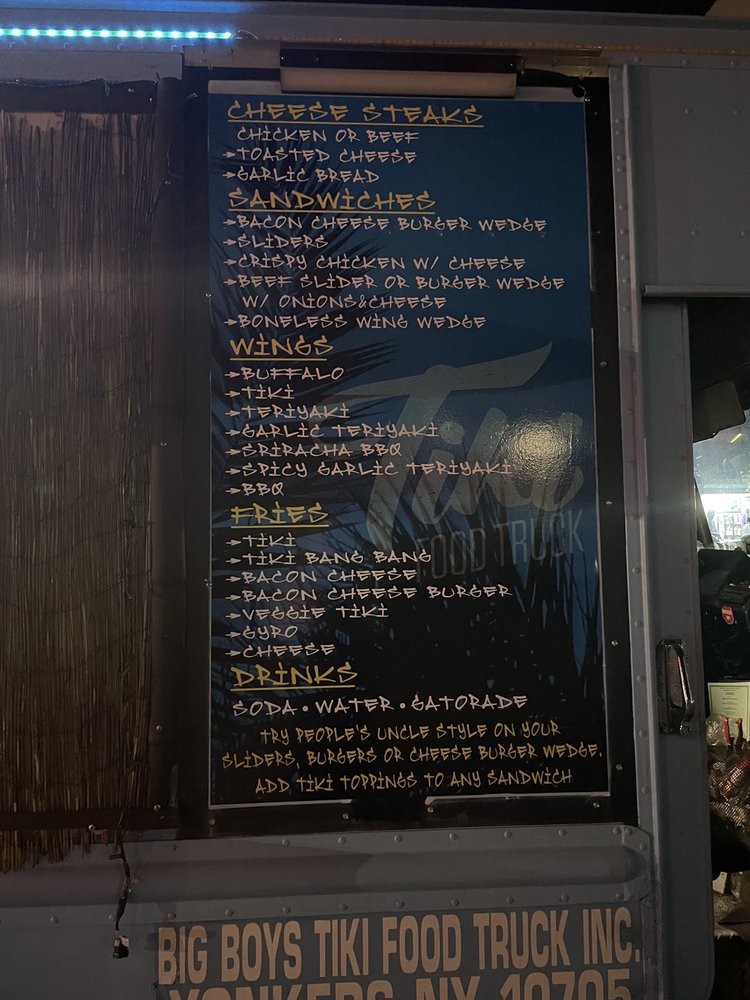 CHEESE STEAKS
CHICKEN OR BEEF
→TOASTED CHEESE
→GARLIC BREAD
SANDWICHES
→BACON CHEESE BURGER WEDGE
→SLIDERS
→CRISPY CHICKEN W/ CHEESE
→BEEF SLIDER OR BURGER WEDGE
W/ ONIONS&CHEESE
→BONELESS WING WEDGE
WINGS
→BUFFALO
→TIKI
→TERIYAKI
→GARLIC TERIYAKI
→SRIRACHA BBQ
→SPICY GARLIC TERIYAKI
→BBQ
FRIES
→TIKI
→TIKI BANG BANG
→BACON CHEESE
→BACON CHEESE BURGER
→VEGGIE TIKI
→GYRO
→CHEESE
DRINKS
SODA • WATER • GATORADE
TRY PEOPLE'S UNCLE STYLE ON YOUR
SLIDERS, BURGERS OR CHEESE BURGER WEDGE.
ADD TIKI TOPPINGS TO ANY SANDWICH
Tiki
FOOD TRUCK
BIG BOYS TIKI FOOD TRUCK INC.
YONKERS NY 10705